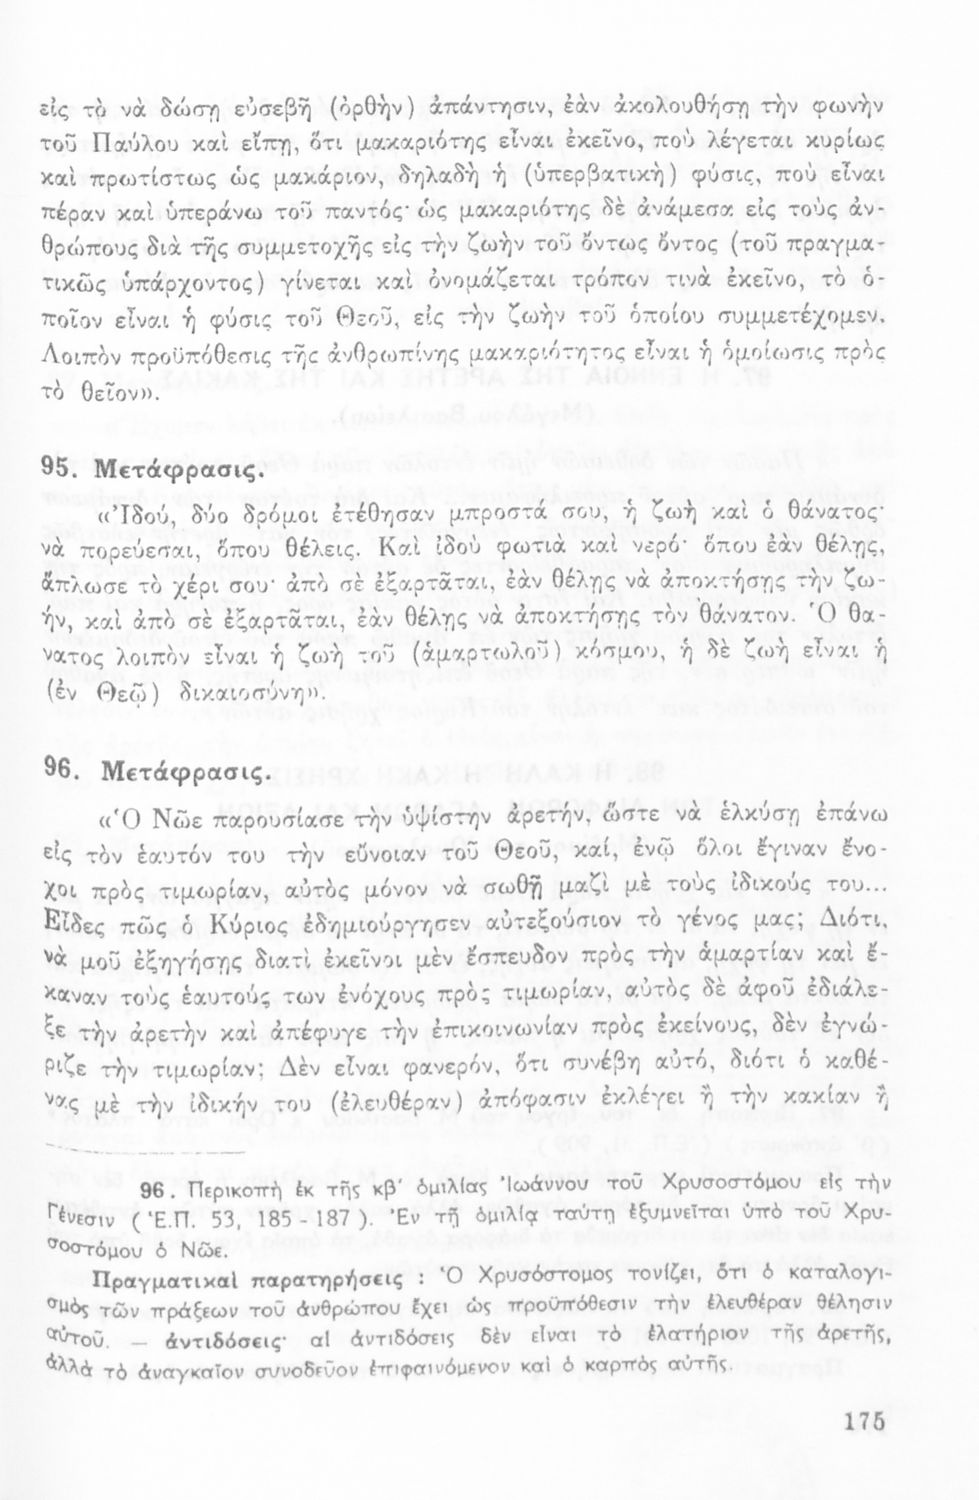 εἰς τὸ νὰ δώσῃ εὐσεβῆ (ὀρθὴν) ἀπάντησιν, ἐὰν ἀκολουθήσῃ τὴν φωνὴν
τοῦ Παύλου καὶ εἴπῃ, ὅτι μακαριότης εἶναι ἐκεῖνο, ποὺ λέγεται κυρίως
καὶ πρωτίστως ὡς μακάριον, δηλαδὴ ἡ (ὑπερβατικὴ) φύσις, ποὺ εἶναι
πέραν καὶ ὑπεράνω τοῦ παντός· ὡς μακαριότης δὲ ἀνάμεσα εἰς τοὺς ἀν-
θρώπους διὰ τῆς συμμετοχῆς εἰς τὴν ζωὴν τοῦ ὄντως ὄντος (τοῦ πραγμα-
τικῶς ὑπάρχοντος) γίνεται καὶ ὀνομάζεται τρόπον τινὰ ἐκεῖνο, τὸ ὁ-
ποῖον εἶναι ἡ φύσις τοῦ Θεοῦ, εἰς τὴν ζωὴν τοῦ ὁποίου συμμετέχομεν.
Λοιπὸν προϋπόθεσις τῆς ἀνθρωπίνης μακαριότητος εἶναι ἡ ὁμοίωσις πρὸς
τὸ θεῖον».
95. Μετάφρασις.
«Ἰδού, δύο δρόμοι ἐτέθησαν μπροστά σου, ἡ ζωὴ καὶ ὁ θάνατος·
νὰ πορεύεσαι, ὅπου θέλεις. Καὶ ἰδοὺ φωτιὰ καὶ νερό· ὅπου ἐὰν θέλῃς,
ἅπλωσε τὸ χέρι σου· ἀπὸ σὲ ἐξαρτᾶται, ἐὰν θέλῃς νὰ ἀποκτήσῃς τὴν ζω-
ήν, καὶ ἀπὸ σὲ ἐξαρτᾶται, ἐὰν θέλῃς νὰ ἀποκτήσῃς τὸν θάνατον. Ὁ θά-
νατος λοιπὸν εἶναι ἡ ζωὴ τοῦ (ἁμαρτωλοῦ) κόσμου, ἡ δὲ ζωὴ εἶναι ἡ
(ἐν Θεῷ) δικαιοσύνη».
96. Μετάφρασις.
«Ὁ Νῶε παρουσίασε τὴν ὑψίστην ἀρετήν, ὥστε νὰ ἑλκύσῃ ἐπάνω
εἰς τὸν ἑαυτόν του τὴν εὔνοιαν τοῦ Θεοῦ, καί, ἐνῷ ὅλοι ἔγιναν ἔνο-
χοι πρὸς τιμωρίαν, αὐτὸς μόνον νὰ σωθῇ μαζὶ μὲ τοὺς ἰδικούς του...
Εἶδες πῶς ὁ Κύριος ἐδημιούργησεν αὐτεξούσιον τὸ γένος μας; Διότι,
νὰ μοῦ ἐξηγήσῃς διατὶ ἐκεῖνοι μὲν ἔσπευδον πρὸς τὴν ἁμαρτίαν καὶ ἔ-
καναν τοὺς ἑαυτούς των ἐνόχους πρὸς τιμωρίαν, αὐτὸς δὲ ἀφοῦ ἐδιάλε-
ξε τὴν ἀρετὴν καὶ ἀπέφυγε τὴν ἐπικοινωνίαν πρὸς ἐκείνους, δὲν ἐγνώ-
ριζε τὴν τιμωρίαν; Δὲν εἶναι φανερόν, ὅτι συνέβη αὐτό, διότι ὁ καθέ-
νας μὲ τὴν ἰδικήν του (ἐλευθέραν) ἀπόφασιν ἐκλέγει ἢ τὴν κακίαν ἢ
96. Περικοπὴ ἐκ τῆς κβ′ ὁμιλίας Ἰωάννου τοῦ Χρυσοστόμου εἰς τὴν
Γένεσιν (Ἑ.Π. 53, 185 - 187). Ἐν τῇ ὁμιλίᾳ ταύτῃ ἐξυμνεῖται ὑπὸ τοῦ Χρυ-
σοστόμου ὁ Νῶε.
Πραγματικαὶ παρατηρήσεις : Ὁ Χρυσόστομος τονίζει, ὅτι ὁ καταλογι-
σμὸς τῶν πράξεων τοῦ ἀνθρώπου ἔχει ὡς προϋπόθεσιν τὴν ἐλευθέραν θέλησιν
αὐτοῦ. — ἀντιδόσεις· αἱ ἀντιδόσεις δὲν εἶναι τὸ ἐλατήριον τῆς ἀρετῆς,
ἀλλὰ τὸ ἀναγκαῖον συνοδεῦον ἐπιφαινόμενον καὶ ὁ καρπὸς αὐτῆς.
175